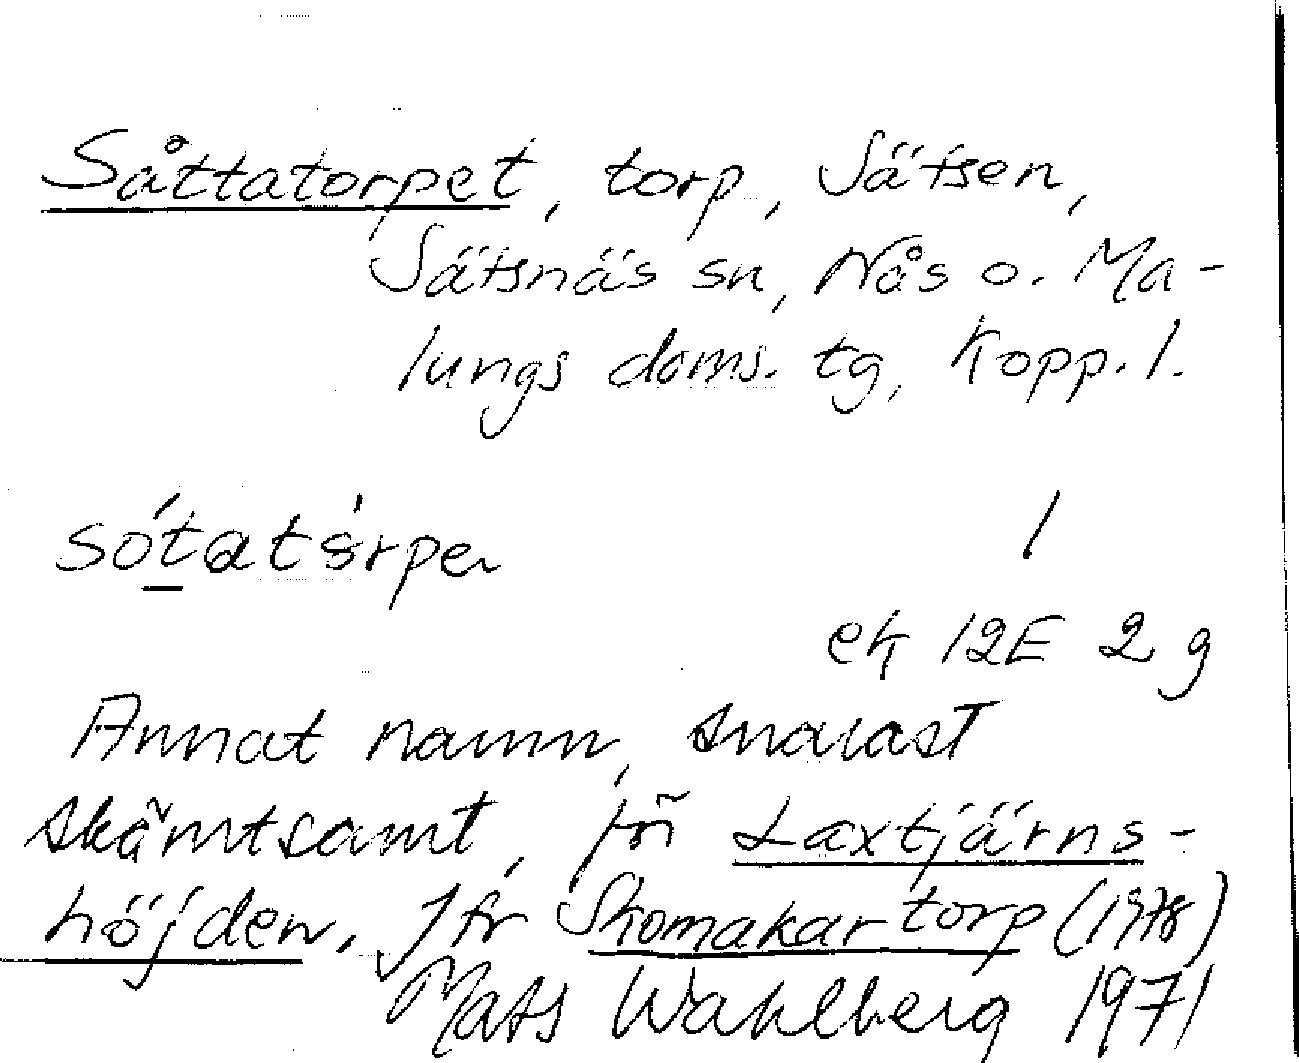 Såttatorpet, torp, Sätsen,
Sätsnäs sn, Nås o. Ma-
lungs doms. tg, Kopp. l.
sótatårpe
1
ek 12E 2 g
Annat namn, snarast
skämtsamt, för Laxtjärns-
höjden. Jfr Skomakartorp (1978)
Mats Wahlberg 1971